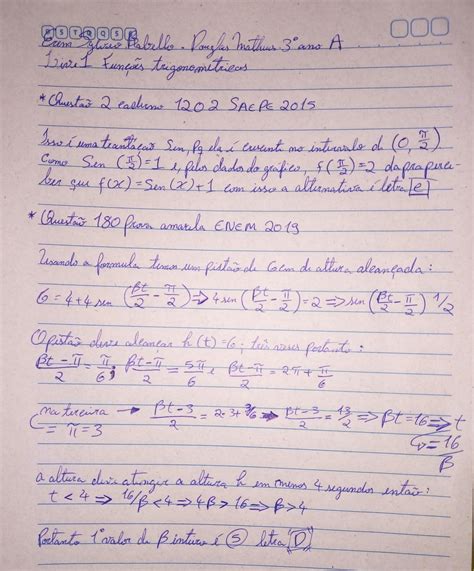 D S T Q Q S S
Erem Sylvio Rabello. Douglas Mathus 3° ano A
Livre 1 Funções trigonométricas
*Questão 2 caderno 1202 SAEPE 2015
Isso é uma Sen, pq ela é no intervalo d (0, π/2)
Como Sen (π/2) = 1 e, pelos dados do gráfico, f(π/2) = 2 da pra perce-
ber que f(x) = Sen(x)+1 com isso a alternativa é letra e
* Questão 180 Prova amarela ENEM 2019
Usando a formula temos um pistão de 6cm de altura alcançada:
6 = 4+4 sen (βt/2 - π/2) ⇒ 4 sen (βt/2 - π/2) = 2 ⇒ sen (βt/2 - π/2) 1/2
O pistão deve alcançar h(t)=6; três veses portanto:
βt-π/2 = π/6; βt-π/2 = 5π/6 e βt-π/2 = 2π + π/6
na terceira → βt-3/2 = 2·3+3/6 → βt-3/2 = 13/2 ⇒ βt = 16 ⇒ t
= π = 3 = 16/β
a altura deve atingir a altura h em menos 4 segundos então:
t < 4 ⇒ 16/β < 4 ⇒ 4β > 16 ⇒ β > 4
Portanto 1° valor de β inturo é 5 letra D